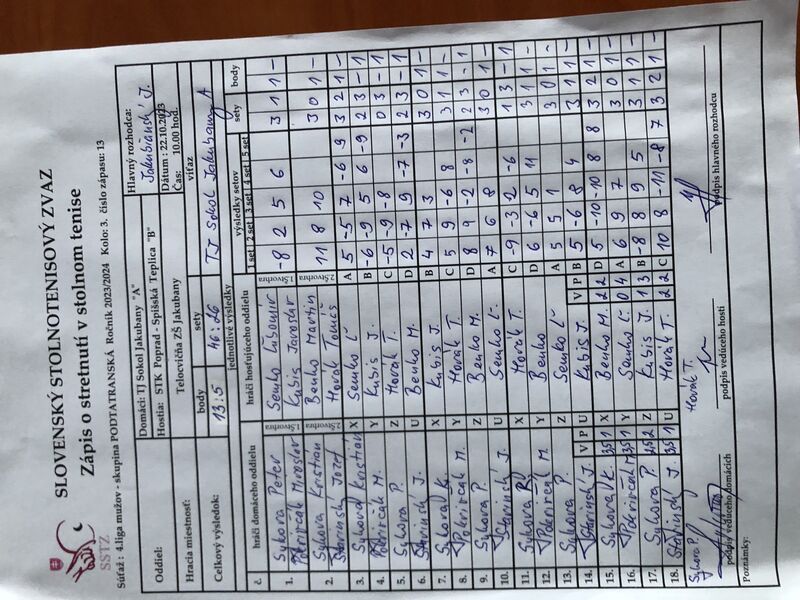 SLOVENSKÝ STOLNOTENISOVÝ ZVAZ
Zápis o stretnutí v stolnom tenise
SSTZ
Súťaž : 4.liga mužov - skupina PODTATRANSKÁ Ročník 2023/2024 Kolo: 3. číslo zápasu: 13
Oddiel: Domáci: TJ Sokol Jakubany "A" Hlavný rozhodca:
Hostia: STK Poprad - Spišská Teplica "B" Jakubianský J.
Hracia miestnosť: Telocvičňa ZŠ Jakubany Dátum : 22.10.2023
Čas: 10.00 hod.
Celkový výsledok: body sety víťaz
13:5 46:26 TJ Sokol Jakubany A
jednotlivé výsledky
č. hráči domáceho oddielu hráči hosťujúceho oddielu výsledky setov sety body
1 set 2 set 3 set 4 set 5 set
1. Sykora Peter 1.Štvorhra Semko Ľubomír 1.Štvorhra -8 2 5 6 3 1 1 -
Pokrivčák Miroslav Kubis Jaroslav
2. Sykora Kristian 2.Štvorhra Benko Martin 2.Štvorhra 11 8 10 3 0 1 -
Stavinský Jozef Horák Tomáš
3. Sykora Kristian X Semko Ľ A 5 -5 7 -6 9 3 2 1 -
4. Pokrivčák M. Y Kubis J. B -6 -9 5 6 -9 2 3 - 1
5. Sykora P. Z Horák T. C -5 -9 -8 0 3 - 1
6. Stavinský J. U Benko M. D 2 -7 9 -7 -3 2 3 - 1
7. Sykora K. X Kubis J. B 4 7 3 3 0 1 -
8. Pokrivčák M. Y Horák T. C 5 9 -6 8 3 1 1 -
9. Sykora P. Z Benko M. D 8 9 -2 -8 -2 2 3 - 1
10. Stavinský J U Semko Ľ. A 7 6 8 3 0 1 -
11. Sykora X Horák T. C -9 -3 2 -6 1 3 - 1
12. Pokrivčák M. Y Benko D 6 -6 5 11 3 1 1 -
13. Sykora P. Z Semko Ľ A 5 5 1 3 0 1 -
14. Stavinský J. V P U Kubis J. V P B 5 -6 8 4 3 1 1 -
15. Sykora K. 3 5 1 X Benko M. 2 2 D 5 -10 -10 8 8 3 2 1 -
16. Pokrivčák M 3 5 1 Y Semko Ľ 0 4 A 6 9 7 3 0 1 -
17. Sykora P. 2 5 2 Z Kubis J 1 3 B -8 8 9 5 3 1 1 -
18. Stavinský J. 3 5 1 U Horák T. 2 2 C 10 8 -11 -8 7 3 2 1 -
Sykora P. Horák T.
podpis vedúceho domácich podpis vedúceho hostí podpis hlavného rozhodcu
Poznámky: